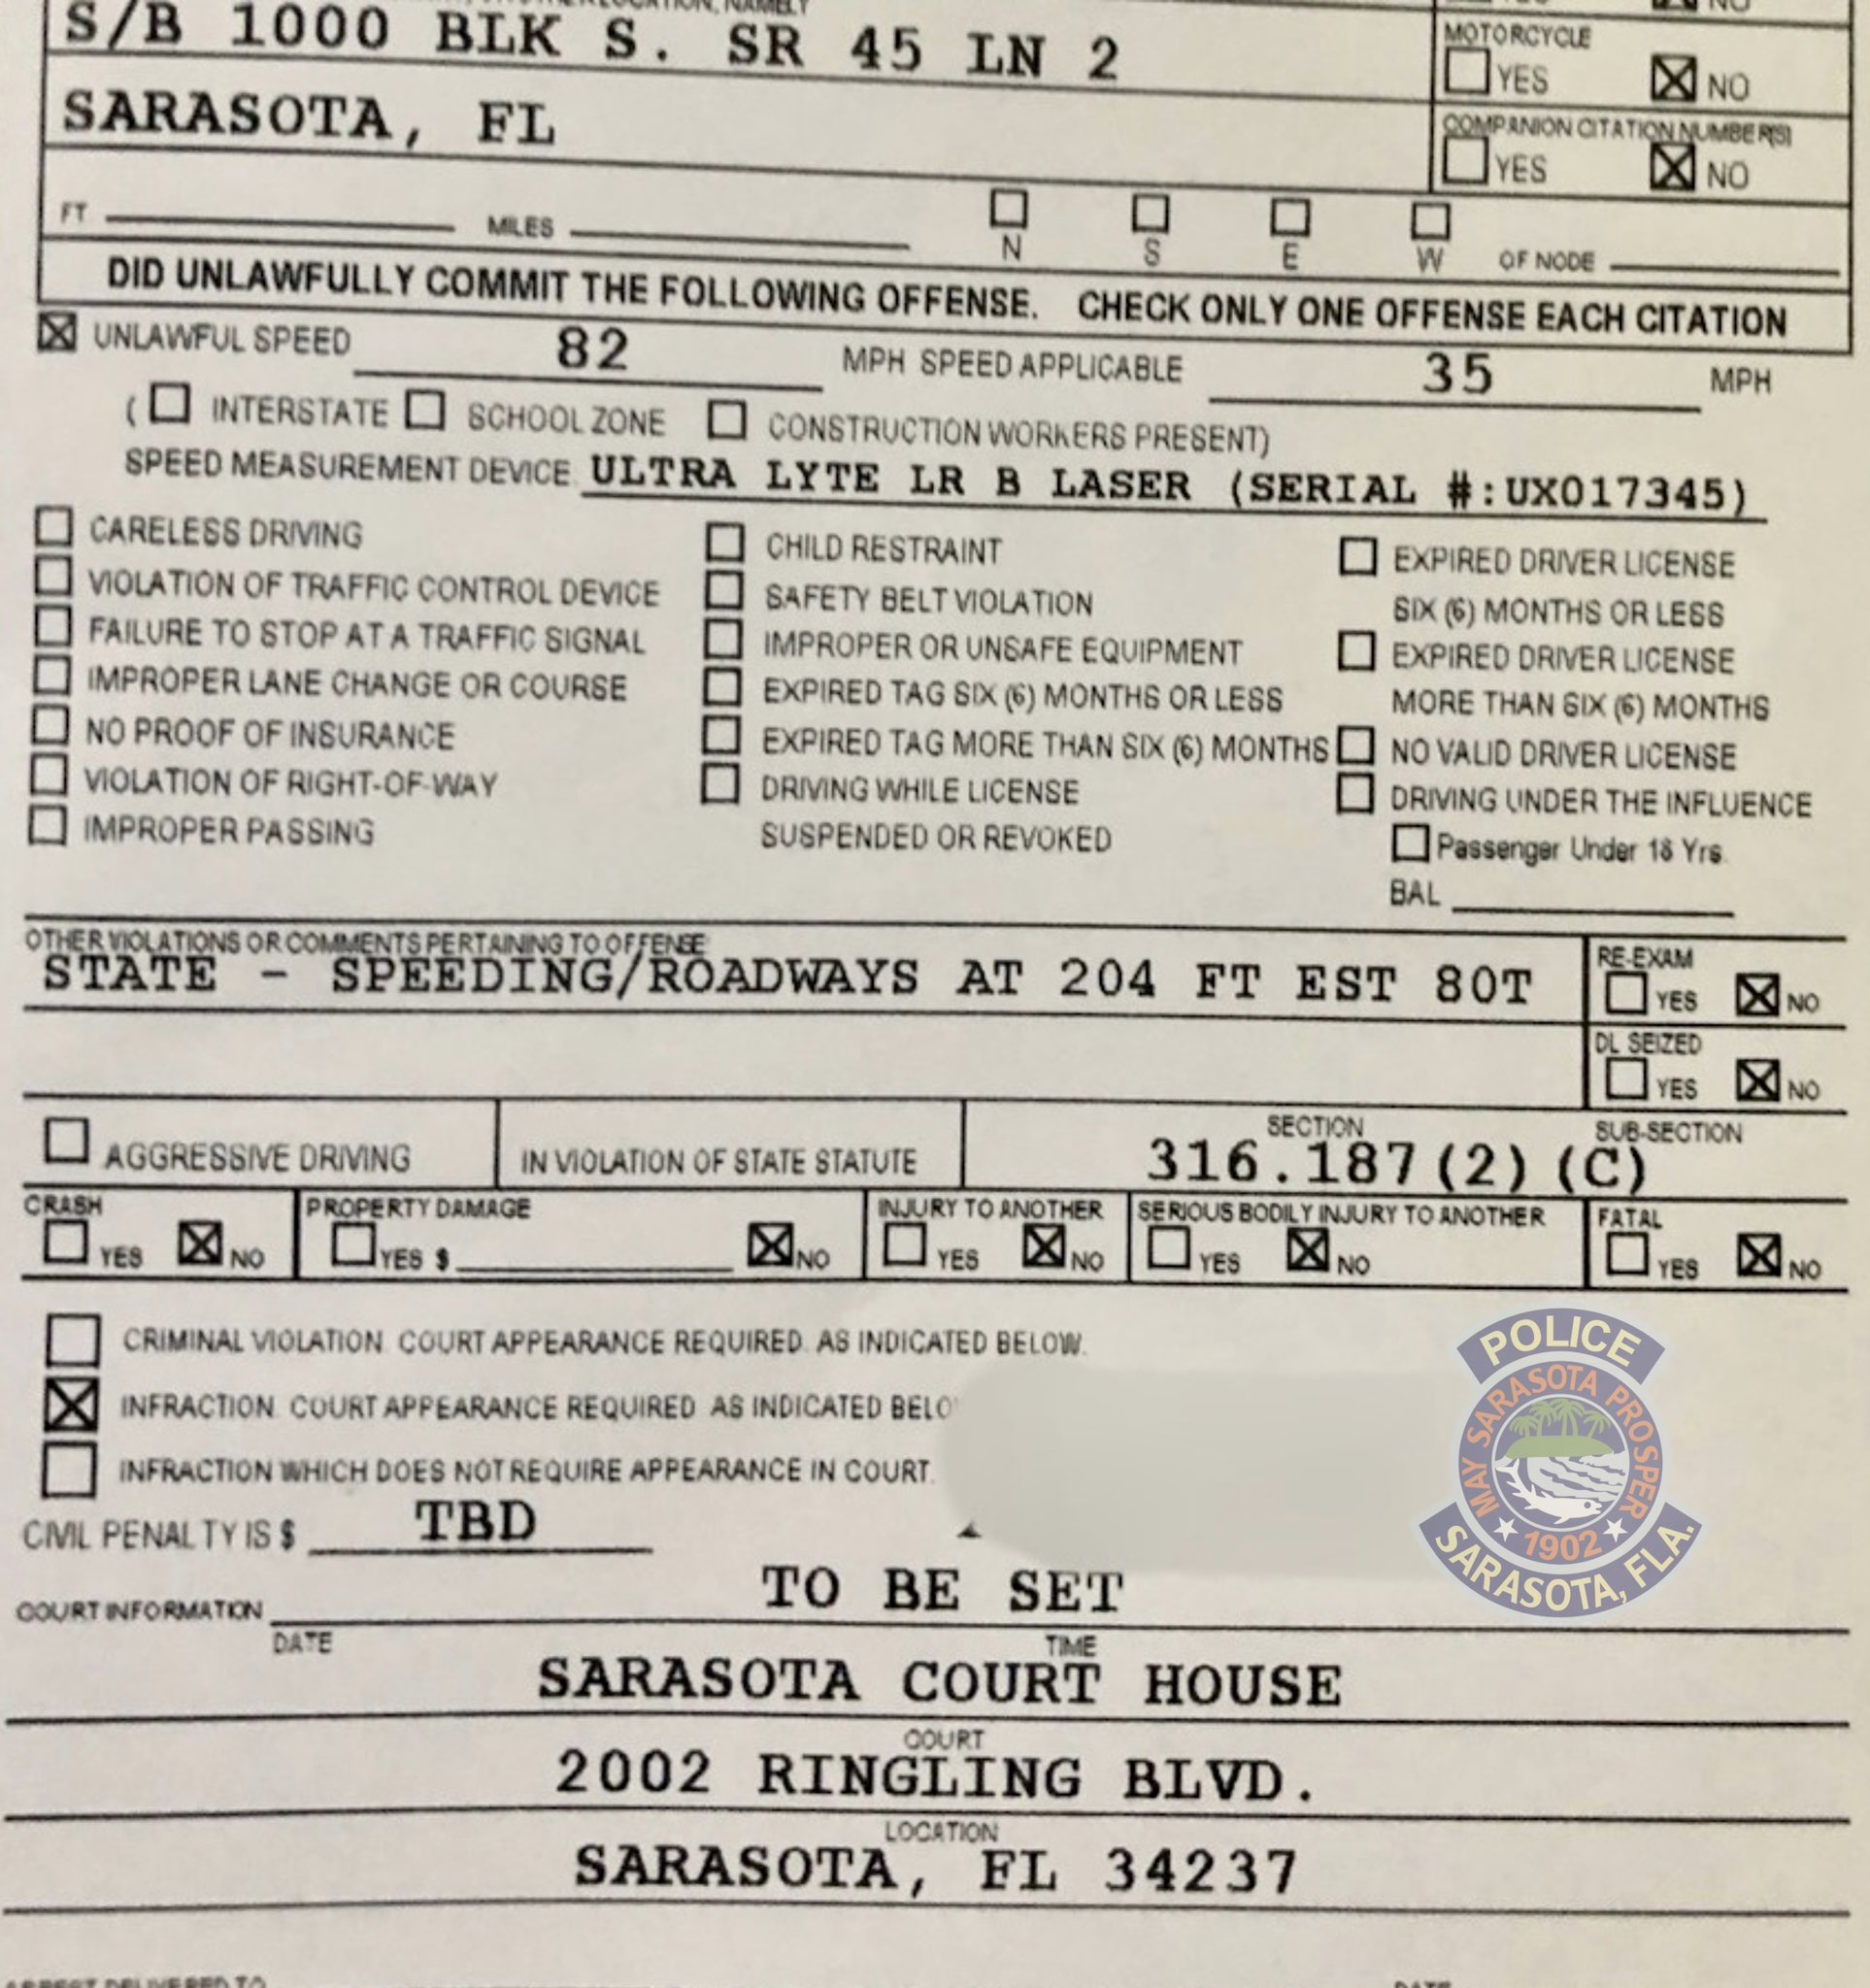 S/B 1000 BLK S. SR 45 LN 2
NO
MOTORCYCLE
YES NO
SARASOTA, FL
COMPANION CITATION NUMBER(S)
YES NO
FT MILES N S E W OF NODE
DID UNLAWFULLY COMMIT THE FOLLOWING OFFENSE. CHECK ONLY ONE OFFENSE EACH CITATION
UNLAWFUL SPEED 82 MPH SPEED APPLICABLE 35 MPH
( INTERSTATE SCHOOL ZONE CONSTRUCTION WORKERS PRESENT)
SPEED MEASUREMENT DEVICE ULTRA LYTE LR B LASER (SERIAL #:UX017345)
CARELESS DRIVING
VIOLATION OF TRAFFIC CONTROL DEVICE
FAILURE TO STOP AT A TRAFFIC SIGNAL
IMPROPER LANE CHANGE OR COURSE
NO PROOF OF INSURANCE
VIOLATION OF RIGHT-OF-WAY
IMPROPER PASSING
CHILD RESTRAINT
SAFETY BELT VIOLATION
IMPROPER OR UNSAFE EQUIPMENT
EXPIRED TAG SIX (6) MONTHS OR LESS
EXPIRED TAG MORE THAN SIX (6) MONTHS
DRIVING WHILE LICENSE
SUSPENDED OR REVOKED
EXPIRED DRIVER LICENSE
SIX (6) MONTHS OR LESS
EXPIRED DRIVER LICENSE
MORE THAN SIX (6) MONTHS
NO VALID DRIVER LICENSE
DRIVING UNDER THE INFLUENCE
Passenger Under 18 Yrs.
BAL
OTHER VIOLATIONS OR COMMENTS PERTAINING TO OFFENSE
STATE - SPEEDING/ROADWAYS AT 204 FT EST 80T
RE-EXAM
YES NO
DL SEIZED
YES NO
AGGRESSIVE DRIVING
IN VIOLATION OF STATE STATUTE
SECTION SUB-SECTION
316.187(2)(C)
CRASH
YES NO
PROPERTY DAMAGE
YES $ NO
INJURY TO ANOTHER
YES NO
SERIOUS BODILY INJURY TO ANOTHER
YES NO
FATAL
YES NO
CRIMINAL VIOLATION. COURT APPEARANCE REQUIRED. AS INDICATED BELOW.
INFRACTION. COURT APPEARANCE REQUIRED AS INDICATED BELO
INFRACTION WHICH DOES NOT REQUIRE APPEARANCE IN COURT.
POLICE
MAY SARASOTA PROSPER
1902
SARASOTA, FLA.
CIVIL PENALTY IS $ TBD
COURT INFORMATION TO BE SET
DATE TIME
SARASOTA COURT HOUSE
COURT
2002 RINGLING BLVD.
LOCATION
SARASOTA, FL 34237